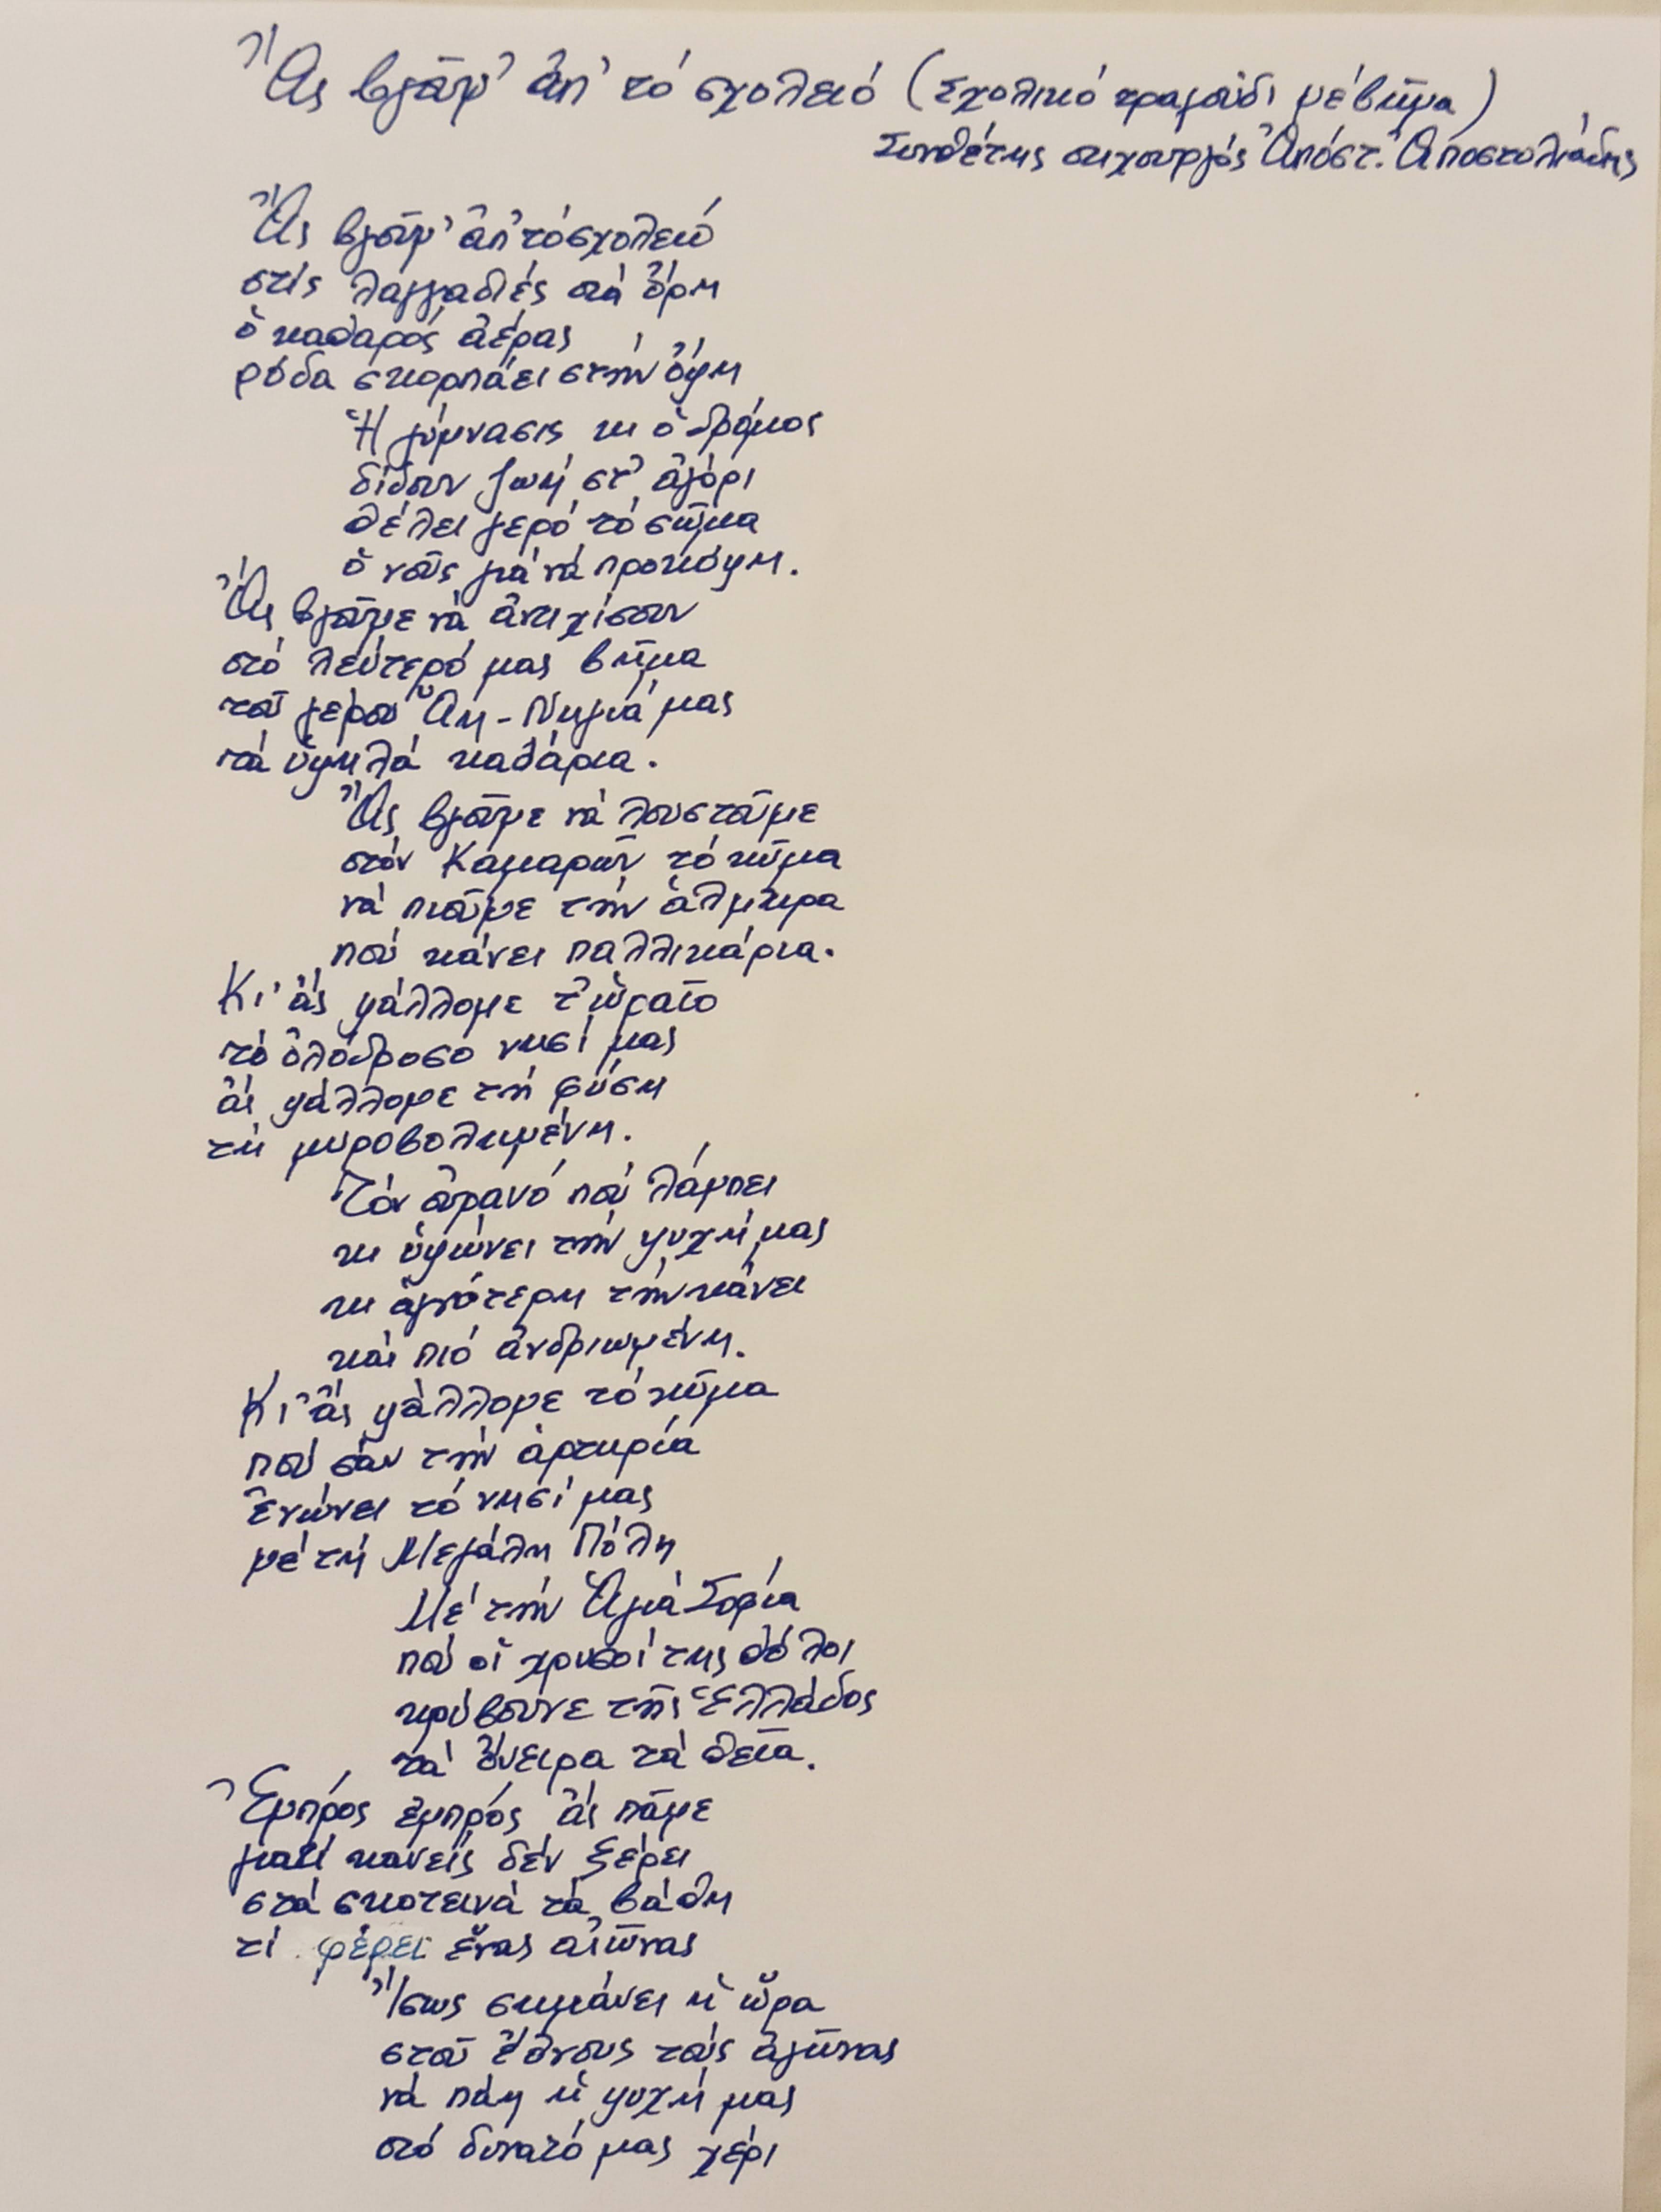 Ἂς βγοῦμ' ἀπ' τό σχολειό (Σχολικό τραγούδι μέ βῆμα)
Συνθέτης στιχουργός Ἀπόστ. Ἀποστολιάδης
Ἂς βγοῦμ' ἀπ' τό σχολειό
στίς λαγγαδιές στά ὄρη
ὁ καθαρός ἀέρας
ρόδα σκορπάει στήν ὄψη
Ἡ γύμνασις κι ὁ δρόμος
δίδουν ζωή στ' ἀγόρι
θέλει γερό τό σῶμα
ὁ νοῦς γιά νά προκόψη.
Ἂς βγοῦμε νά ἀντιχίσουν
στό λεύτερό μας βῆμα
τοῦ γέρου Ἅη-Πηγιά μας
τά ὑψηλά καθάρια.
Ἂς βγοῦμε νά λουστοῦμε
στόν Καμαρῶν τό κῦμα
νά πιοῦμε τήν ἁλμύρα
πού κάνει παλλικάρια.
Κι' ἄς ψάλλομε τ' ὡραῖο
τό ὁλόδροσο νησί μας
ἄς ψάλλομε τή φύση
τή μυροβολημένη.
Τόν οὐρανό πού λάμπει
κι ὑψώνει τήν ψυχή μας
κι ἁγνότερη τήν κάνει
καί πιό ἀνδριωμένη.
Κι' ἄς ψάλλομε τό κῦμα
πού σάν τήν ἀρτηρία
ἑνώνει τό νησί μας
μέ τή Μεγάλη Πόλη
Μέ τήν Ἁγιά Σοφία
πού οἱ χρυσοί της θόλοι
κρύβουνε τῆς Ἑλλάδος
τά ὄνειρα τά θεῖα.
Ἐμπρός ἐμπρός ἄς πᾶμε
γιατί κανείς δέν ξέρει
στά σκοτεινά τά βάθη
τί φέρει ἕνας αἰῶνας
Ἴσως σημάνει ἡ ὥρα
στοῦ ἔθνους τούς ἀγῶνας
νά πάη ἡ ψυχή μας
στό δυνατό μας χέρι